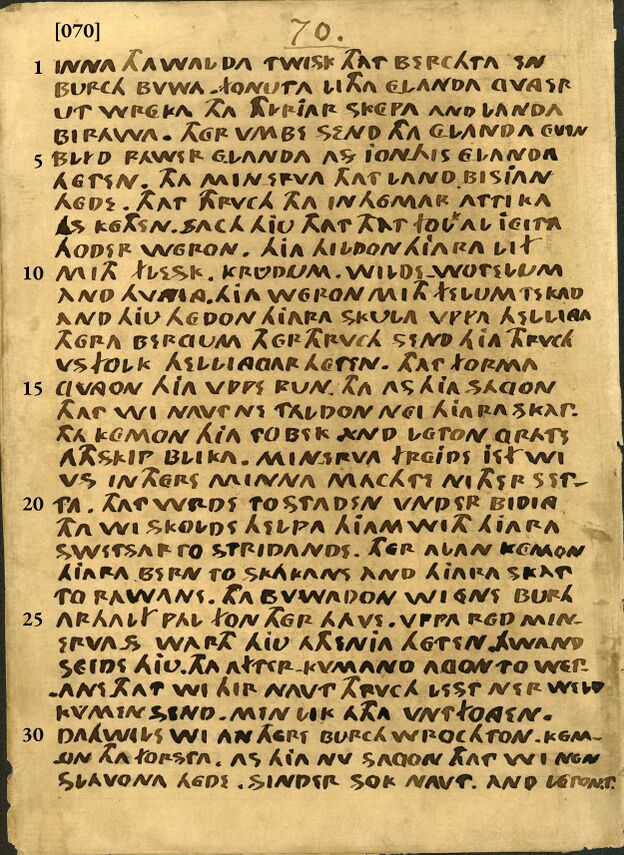 [070]
70.
1 INNA THA WALDA TWISK THAT BERCHTA EN
BURCH BVWA. FONUTA LITHA ELANDA
UT WREKA THA THYRIAR SKEPA AND LANDA
BIRAWA. THER VMBE SEND THA ELANDA EVIN
5 BLYD RAWER ELANDA AS IONHIS ELANDA
HETEN. THA MINERVA THAT LAND BISIAN
HEDE. THAT THRVCH THA INHEMAR ATTIKA
AS HETHEN. SACH HIU THAT THAT FOLK AL IEITA
HODER WERON. HIA HILDON HIARA LIF
10 MITH FLESK. KRUDUM. WILDE WOTELUM
AND HVNIG. HIA WERON MITH FELUM TEKAD
AND HIU HEDON HIARA SKULA VPPA HELLINGA
THERA BERGUM THERTHRVCH SEND HIA THRVCH
VS FOLK HELLINGGAR HETEN. THAT FORMA
15 GVNGON HIA VPPE RUN. THA AS HIA SAGON
THAT WI NAVT NE TALDON NEI HIARA SKAT.
THA KEMON HIA TOBEK AND LETON GRATE
ATHSKIP BLIKA. MINERVA FREIDE IEF WI
VS IN THERE MINNA MACHTE NITHER SET-
20 TA. THAT WRDE TOSTADEN VNDER BIDING
THA WI SKOLDE HELPA HIAM WITH HIARA
SWETSAR TO STRIDANDE. THER ALAN KEMON
HIARA BERN TO SKAKANE AND HIARA SKAT
TO RAWANE. THA BVWADON WI ENE BURH
25 ARHALF PAL FON THER HAVE. VPPA RED MIN-
ERVAS WARTH HIU ATHENIA HETEN. HWAND
SEIDE HIU. THA AFTER-KVMAND AGON TO WET-
-ANE THAT WI HIR NAVT THRVCH LEST NER WELD
KVMEN SEND. MEN LIK ATHA VNTFONGEN.
30 DAHWILE WI AN THERE BURCH WROCHTON. KEM-
ON THA FORSTA. AS HIA NV SAGON THAT WI NEN
SLAVONA HEDE. SINDER SOK NAVT. AND LETON.T.